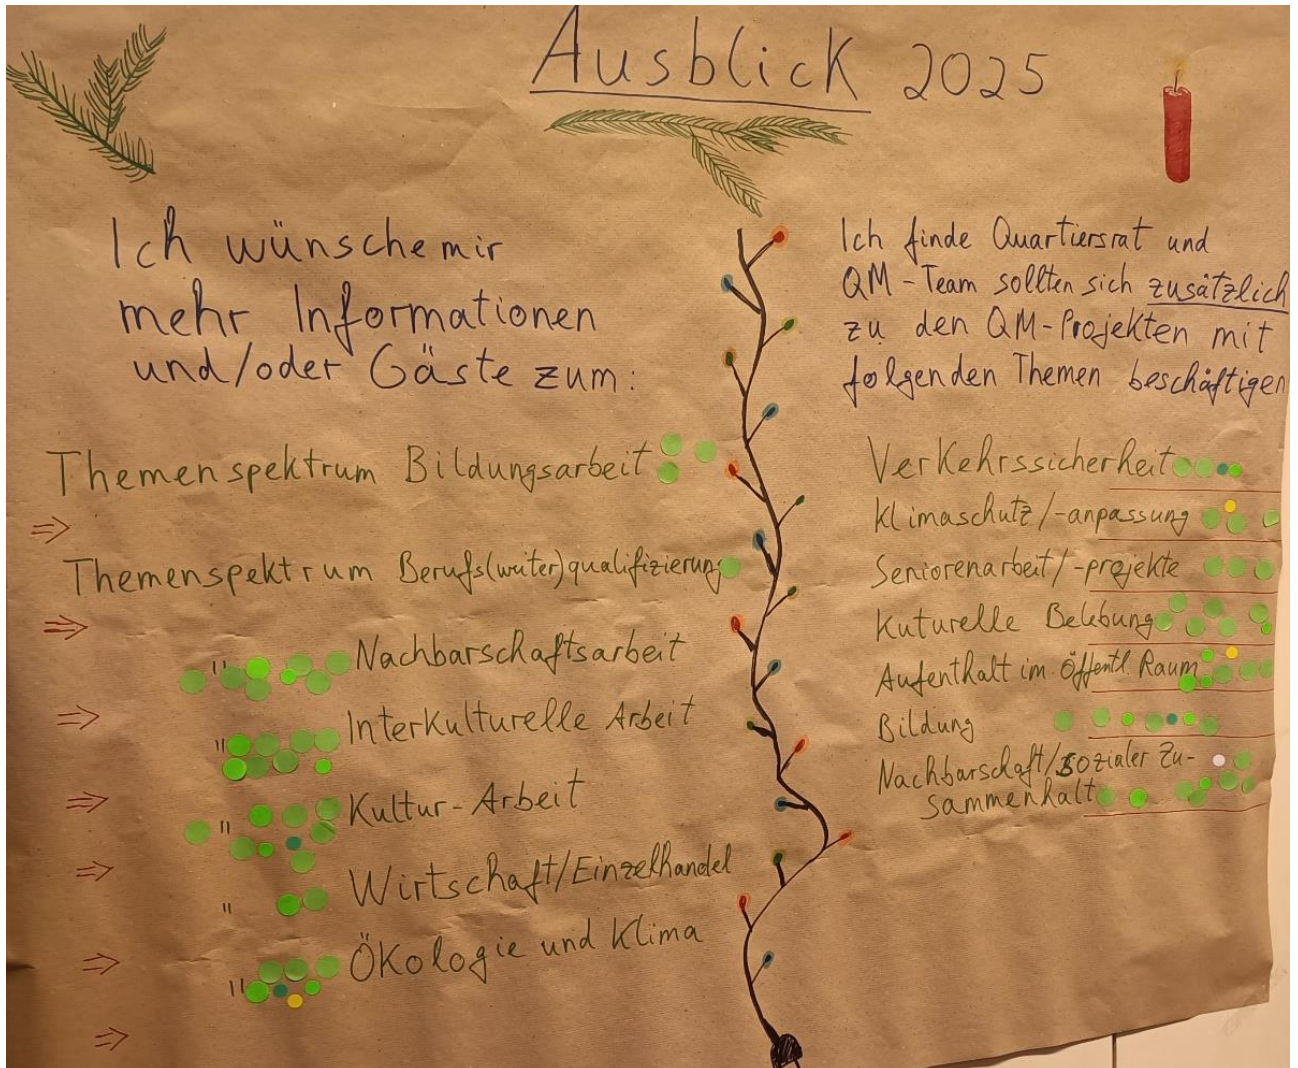 Ausblick 2025
Ich wünsche mir
mehr Informationen
und/oder Gäste zum:
Themenspektrum Bildungsarbeit
⇒
Themenspektrum Berufs(weiter)qualifizierung
⇒
" Nachbarschaftsarbeit
⇒
" Interkulturelle Arbeit
⇒
" Kultur-Arbeit
⇒
" Wirtschaft/Einzelhandel
⇒
" Ökologie und Klima
⇒
Ich finde Quartiersrat und
QM-Team sollten sich zusätzlich
zu den QM-Projekten mit
folgenden Themen beschäftigen
Verkehrssicherheit
Klimaschutz/-anpassung
Seniorenarbeit/-projekte
Kuturelle Belebung
Aufenthalt im öffentl. Raum
Bildung
Nachbarschaft/sozialer Zu-
sammenhalt